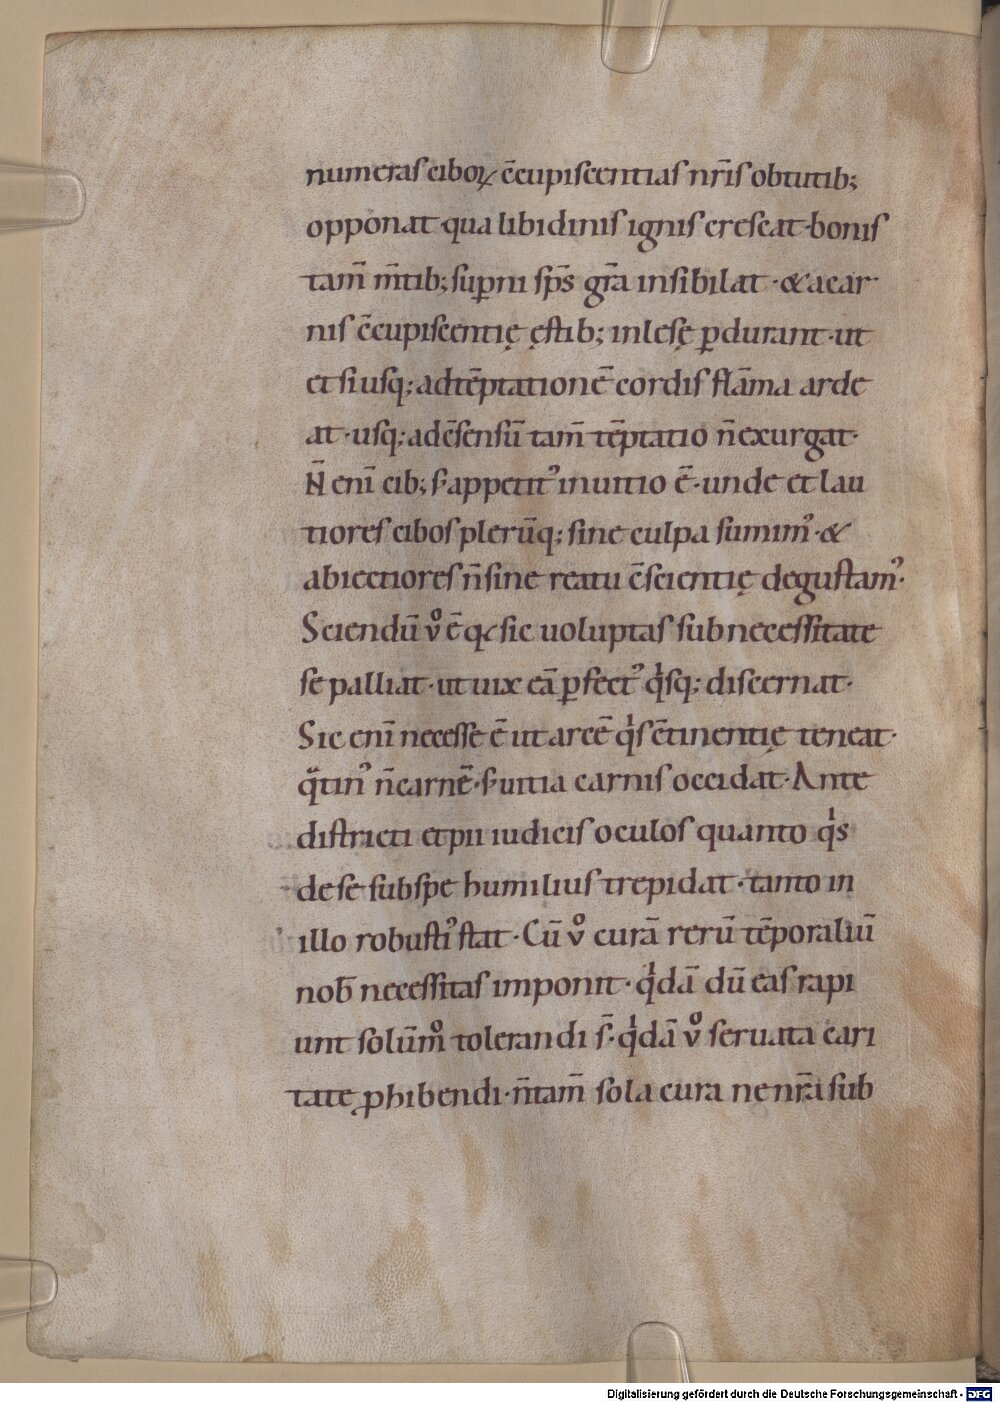 numeras ciboꝝ c̄cupiscentias nr̄is obtutib;
opponat· qua libidinis ignis crescat· bonis
tam̄ m̄tib; suꝑni sp̄s gr̄a insibilat ·& a car·
nis c̄cupiscentię ęstib; inlesę ꝑdurant· ut
et si usq; ad tēptationē cordis flāma arde
at· usq; ad c̄sensū tam̄ tēptatio n̄ exurgat·
N̄ enī cib; s; appetit᾽ in uitio ē· unde et lau
tiores cibos plerūq; sine culpa sumim᾽·&
abiectiores n̄ sine reatu c̄scientię degustam᾽·
Sciendū v̊ ē qꝫ sic uoluptas sub necessitate
se palliat· ut uix eā ꝑfect᾽ qͥsq; discernat·
Sic enī necesse ē ut arcē qͥs c̄tinentię teneat·
qͣtin᾽ n̄ carnē· s; uitia carnis occidat· Ante
districti et pii iudicis oculos quanto qͥs
de se sub spe humilius trepidat· tanto in
illo robusti᾽ stat· Cū v̊ curā rerū tēporaliū
nob̄ necessitas imponit· qͥdā dū eas rapi
unt solūm̊ tolerandi s̄· qͥdā v̊ seruata cari
tate ꝓhibendi· n̄ tam̄ sola cura ne nr̄a sub
Digitalisierung gefördert durch die Deutsche Forschungsgemeinschaft · DFG